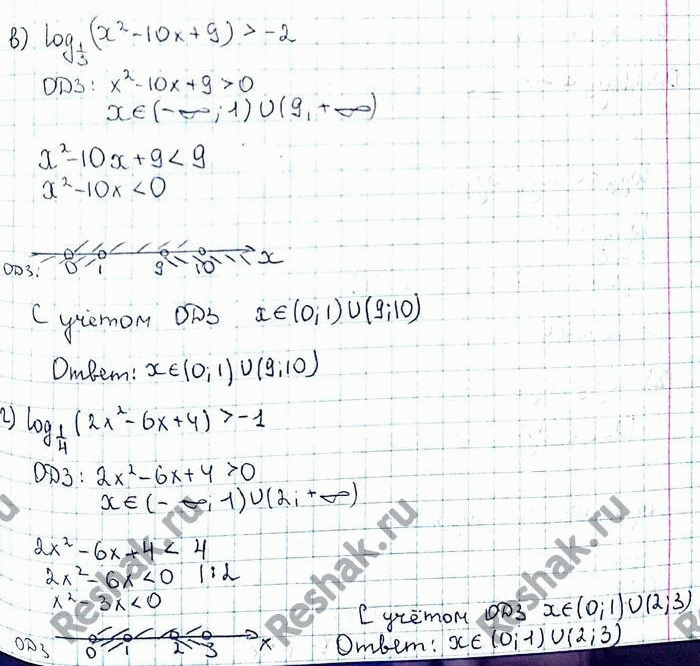 в) log_{1/3}(x²-10x+9) > -2
ОДЗ: x²-10x+9 >0
x∈(-∞; 1)∪(9, +∞)
x²-10x+9 < 9
x²-10x <0
ОДЗ: 0 1 9 10 x
С учётом ОДЗ x∈(0;1)∪(9;10)
Ответ: x∈(0;1)∪(9;10)
г) log_{1/4}(2x²-6x+4) >-1
ОДЗ: 2x²-6x+4 >0
x∈(-∞; 1)∪(2; +∞)
2x²-6x+4 < 4
2x²-6x<0 |:2
x²-3x<0
ОДЗ 0 1 2 3 x
С учётом ОДЗ x∈(0;1)∪(2;3)
Ответ: x∈(0;1)∪(2;3)
Reshak.ru
Reshak.ru
Reshak.ru